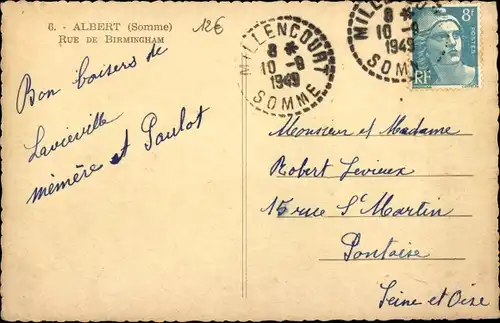 6. - ALBERT (Somme)
RUE DE BIRMINGHAM
12€
Bon baisers de
Lavieville
mémère et Paulot
MILLENCOURT
8 *
10 -8
1949
SOMME
MILLENCOURT
8 *
10 -8
1949
SOMME
8F
POSTES
RF
Monsieur et Madame
Robert Levieux
15 rue St Martin
Pontoise
Seine et Oise